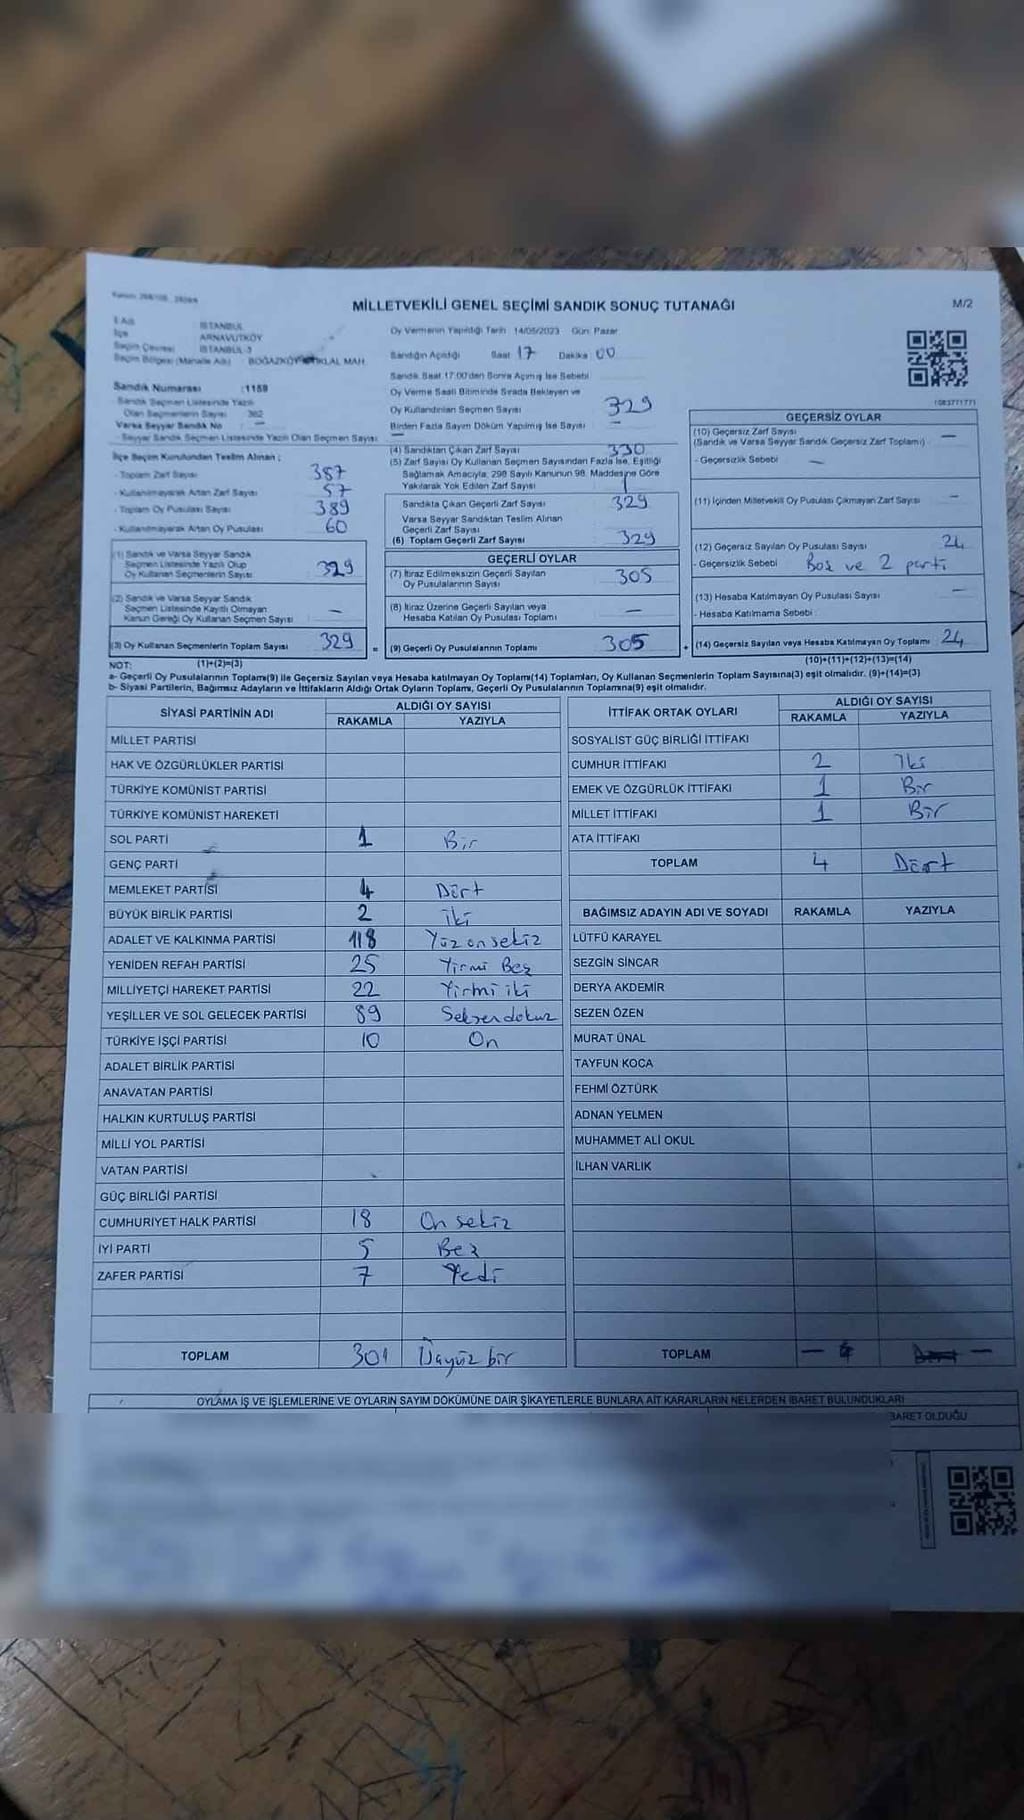 MİLLETVEKİLİ GENEL SEÇİMİ SANDIK SONUÇ TUTANAĞI
M/2
İl Adı : İSTANBUL
İlçe ARNAVUTKÖY
Seçim Çevresi İSTANBUL-3
Seçim Bölgesi (Mahalle Adı) : BOĞAZKÖY MAH.
Sandık Numarası :1159
Sandık Seçmen Listesinde Yazılı
Olan Seçmenlerin Sayısı 362
Varsa Seyyar Sandık No —
Seyyar Sandık Seçmen Listesinde Yazılı Olan Seçmen Sayısı
İlçe Seçim Kurulundan Teslim Alınan ;
- Toplam Zarf Sayısı 387
- Kullanılmayarak Artan Zarf Sayısı 57
- Toplam Oy Pusulası Sayısı 389
- Kullanılmayarak Artan Oy Pusulası 60
(1) Sandık ve Varsa Seyyar Sandık
Seçmen Listesinde Yazılı Olup
Oy Kullanan Seçmenlerin Sayısı 329
(2) Sandık ve Varsa Seyyar Sandık
Seçmen Listesinde Kayıtlı Olmayan
Kanun Gereği Oy Kullanan Seçmen Sayısı —
(3) Oy Kullanan Seçmenlerin Toplam Sayısı 329 =
Oy Vermenin Yapıldığı Tarih 14/05/2023 Gün: Pazar
Sandığın Açıldığı Saat 17 Dakika 00
Sandık Saat 17:00'den Sonra Açılmış İse Sebebi
Oy Verme Saati Bitiminde Sırada Bekleyen ve
Oy Kullandırılan Seçmen Sayısı 329
Birden Fazla Sayım Döküm Yapılmış İse Sayısı —
(4) Sandıktan Çıkan Zarf Sayısı 330
(5) Zarf Sayısı Oy Kullanan Seçmen Sayısından Fazla İse, Eşitliği
Sağlamak Amacıyla, 298 Sayılı Kanunun 98. Maddesine Göre
Yakılarak Yok Edilen Zarf Sayısı 1
Sandıkta Çıkan Geçerli Zarf Sayısı 329
Varsa Seyyar Sandıktan Teslim Alınan
Geçerli Zarf Sayısı
(6) Toplam Geçerli Zarf Sayısı 329
GEÇERLİ OYLAR
(7) İtiraz Edilmeksizin Geçerli Sayılan
Oy Pusulalarının Sayısı 305
(8) İtiraz Üzerine Geçerli Sayılan veya
Hesaba Katılan Oy Pusulası Toplamı —
(9) Geçerli Oy Pusulalarının Toplamı 305 +
1083771771
GEÇERSİZ OYLAR
(10) Geçersiz Zarf Sayısı —
(Sandık ve Varsa Seyyar Sandık Geçersiz Zarf Toplamı)
- Geçersizlik Sebebi —
(11) İçinden Milletvekili Oy Pusulası Çıkmayan Zarf Sayısı —
(12) Geçersiz Sayılan Oy Pusulası Sayısı 24
- Geçersizlik Sebebi Boş ve 2 parti
(13) Hesaba Katılmayan Oy Pusulası Sayısı —
- Hesaba Katılmama Sebebi
(14) Geçersiz Sayılan veya Hesaba Katılmayan Oy Toplamı 24
NOT: (1)+(2)=(3) (10)+(11)+(12)+(13)=(14)
a- Geçerli Oy Pusulalarının Toplamı(9) ile Geçersiz Sayılan veya Hesaba katılmayan Oy Toplamı(14) Toplamları, Oy Kullanan Seçmenlerin Toplam Sayısına(3) eşit olmalıdır. (9)+(14)=(3)
b- Siyasi Partilerin, Bağımsız Adayların ve İttifakların Aldığı Ortak Oyların Toplamı, Geçerli Oy Pusulalarının Toplamına(9) eşit olmalıdır.
SİYASİ PARTİNİN ADI ALDIĞI OY SAYISI
RAKAMLA YAZIYLA
MİLLET PARTİSİ
HAK VE ÖZGÜRLÜKLER PARTİSİ
TÜRKİYE KOMÜNİST PARTİSİ
TÜRKİYE KOMÜNİST HAREKETİ
SOL PARTİ 1 Bir
GENÇ PARTİ
MEMLEKET PARTİSİ 4 Dört
BÜYÜK BİRLİK PARTİSİ 2 iki
ADALET VE KALKINMA PARTİSİ 118 Yüz on sekiz
YENİDEN REFAH PARTİSİ 25 Yirmi Beş
MİLLİYETÇİ HAREKET PARTİSİ 22 Yirmi iki
YEŞİLLER VE SOL GELECEK PARTİSİ 89 Seksen dokuz
TÜRKİYE İŞÇİ PARTİSİ 10 On
ADALET BİRLİK PARTİSİ
ANAVATAN PARTİSİ
HALKIN KURTULUŞ PARTİSİ
MİLLİ YOL PARTİSİ
VATAN PARTİSİ
GÜÇ BİRLİĞİ PARTİSİ
CUMHURİYET HALK PARTİSİ 18 On sekiz
İYİ PARTİ 5 Beş
ZAFER PARTİSİ 7 Yedi
TOPLAM 301 Üçyüz bir
İTTİFAK ORTAK OYLARI ALDIĞI OY SAYISI
RAKAMLA YAZIYLA
SOSYALİST GÜÇ BİRLİĞİ İTTİFAKI
CUMHUR İTTİFAKI 2 İki
EMEK VE ÖZGÜRLÜK İTTİFAKI 1 Bir
MİLLET İTTİFAKI 1 Bir
ATA İTTİFAKI
TOPLAM 4 Dört
BAĞIMSIZ ADAYIN ADI VE SOYADI RAKAMLA YAZIYLA
LÜTFÜ KARAYEL
SEZGİN SİNCAR
DERYA AKDEMİR
SEZEN ÖZEN
MURAT ÜNAL
TAYFUN KOCA
FEHMİ ÖZTÜRK
ADNAN YELMEN
MUHAMMET ALİ OKUL
İLHAN VARLIK
TOPLAM — —
OYLAMA İŞ VE İŞLEMLERİNE VE OYLARIN SAYIM DÖKÜMÜNE DAİR ŞİKAYETLERLE BUNLARA AİT KARARLARIN NELERDEN İBARET BULUNDUKLARI
BARET OLDUĞU